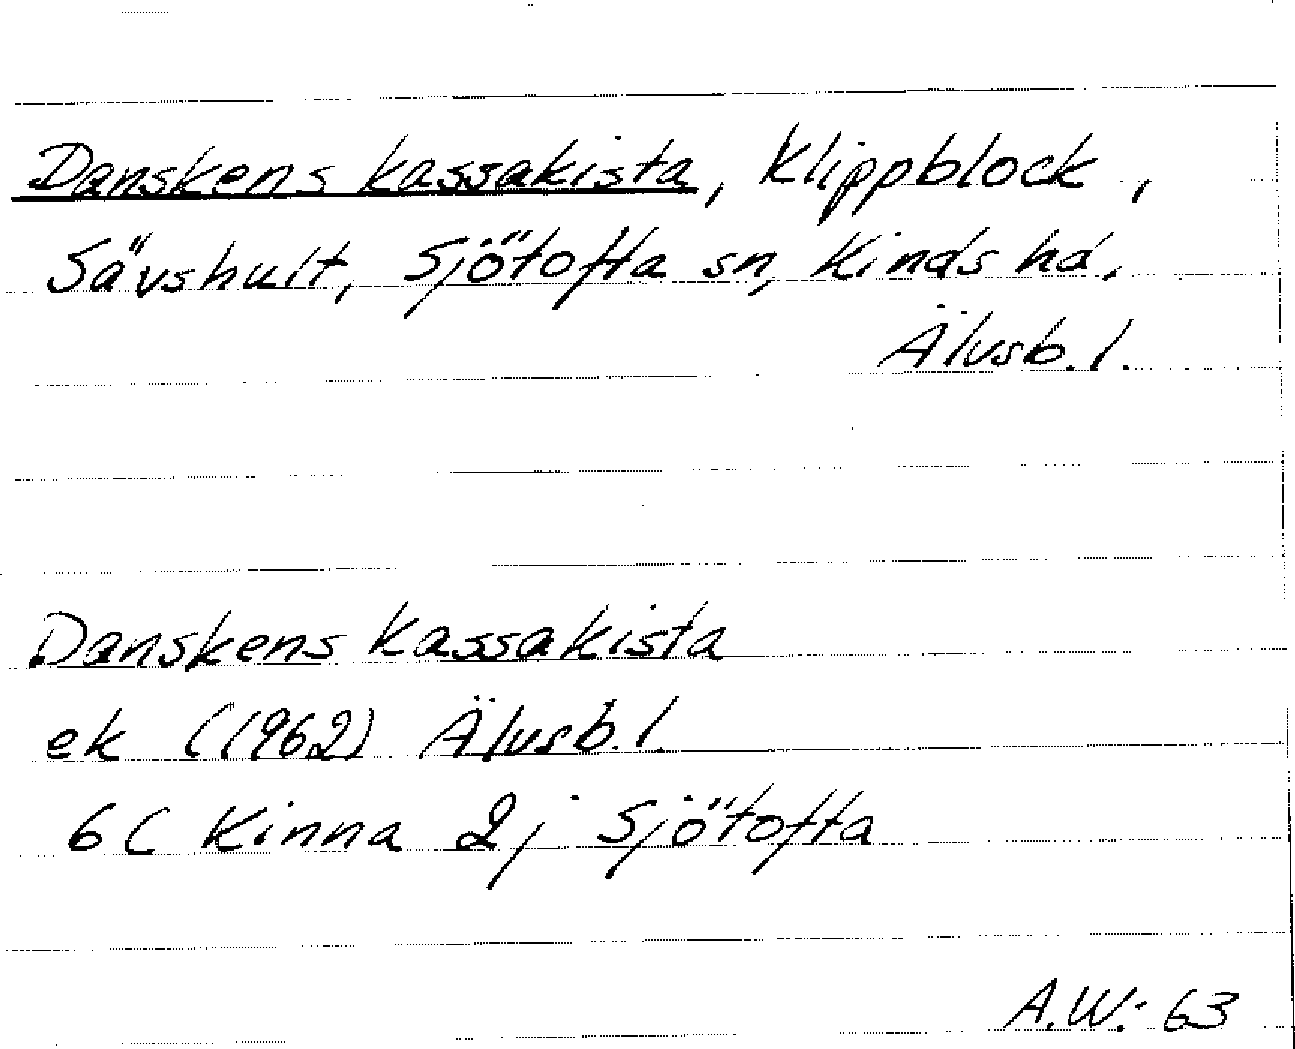 Danskens kassakista, Klippblock,
Sävshult, Sjötofta sn, Kinds hd,
Älvsb.l.
Danskens kassakista
ek (1962) Älvsb.l.
6C Kinna 2j Sjötofta
A.W:- 63